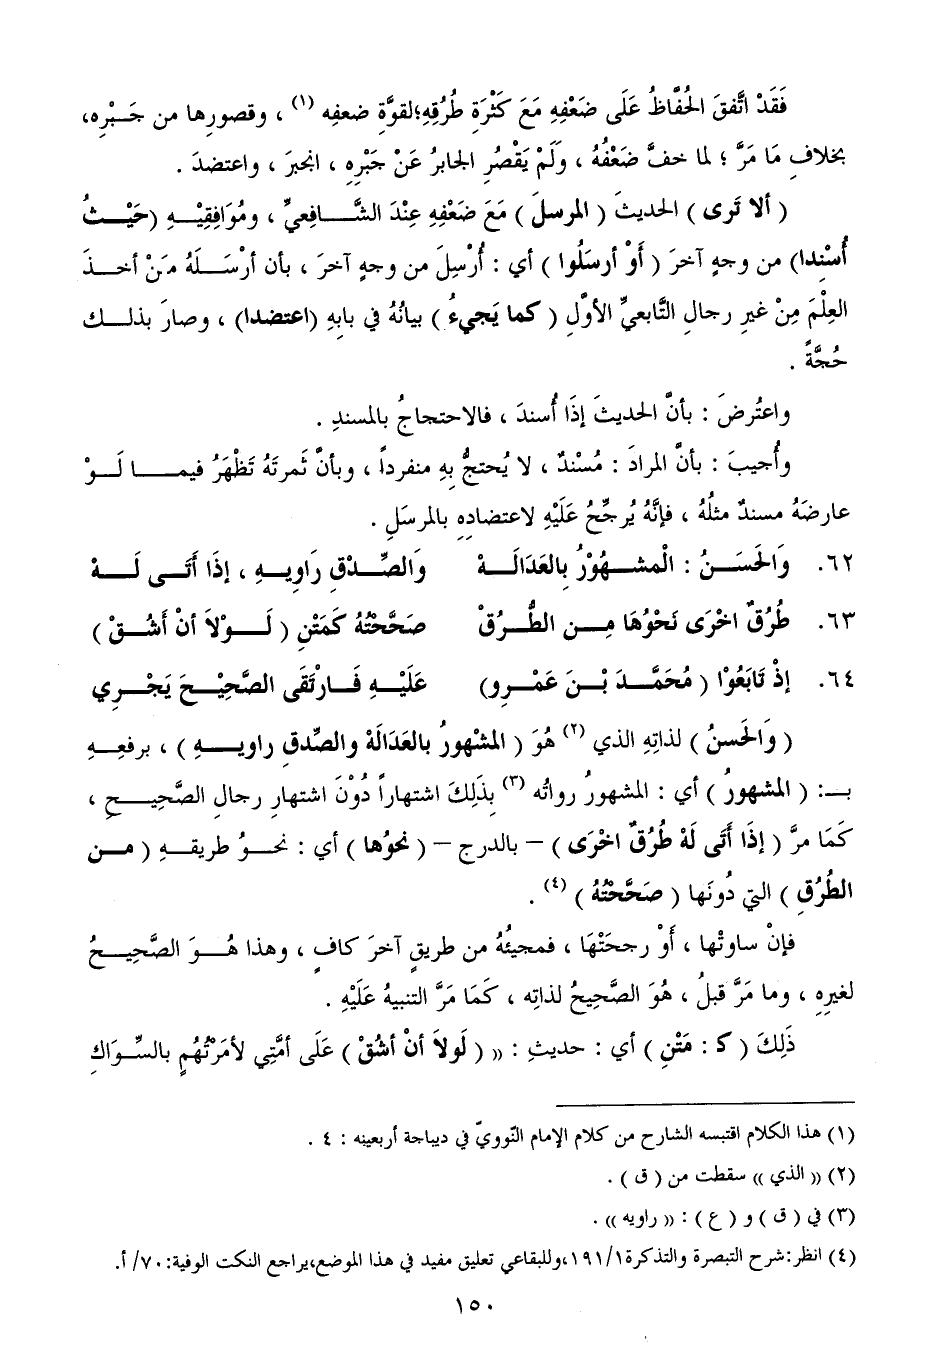 فَقَدْ اتَّفقَ الحُفَّاظُ عَلَى ضَعْفِهِ مَعَ كَثْرَةِ طُرُقِهِ؛لقوَّةِ ضعفِه (١) ، وقصورِها من جَبْرِه،
بخلافِ مَا مَرَّ ؛ لما خفَّ ضَعْفُهُ ، وَلَمْ يَقْصُرِ الجابرُ عَنْ جَبْرِه ، انجبرَ ، واعتضدَ .
( ألا تَرى ) الحديثَ ( المرسلَ ) مَعَ ضَعْفِهِ عِنْدَ الشَّافعيِّ ، ومُوَافِقِيْهِ (حَيْثُ
أُسْنِدا) من وجهٍ آخرَ ( أَوْ أرسَلُوا ) أي : أُرْسِلَ من وجهٍ آخرَ ، بأن أرْسَلَهُ مَنْ أخذَ
العِلْمَ مِنْ غيرِ رجالِ التَّابعيِّ الأوَّلِ ( كما يَجيءُ ) بيانُهُ في بابِهِ (اعتضدا) ، وصارَ بذلك
حُجَّةً .
واعتُرضَ : بأنَّ الحديثَ إذَا أُسندَ ، فالاحتجاجُ بالمسندِ .
وأُجيبَ : بأنَّ المرادَ : مُسْندٌ ، لا يُحتجُّ بِهِ منفرداً ، وبأنَّ ثَمرتَهُ تَظْهَرُ فيما لَوْ
عارضَهُ مسندٌ مثلُهُ ، فإنَّهُ يُرجِّحُ عَلَيْهِ لاعتضادِهِ بالمرسَلِ .
٦٢. وَالحَسَنُ : الْمشهُوْرُ بالعَدَالَةْ وَالصِّدْقِ رَاويهِ ، إذَا أَتَى لَهْ
٦٣. طُرُقٌ اخْرَى نَحْوُهَا مِنِ الطُّرُقْ صَحَّحْتُهُ كَمَتْنِ ( لَوْلاَ أنْ أَشُقْ )
٦٤. إذْ تَابَعُوْا ( مُحَمَّدَ بْنَ عَمْرِو) عَلَيْهِ فَارْتَقَى الصَّحِيْحَ يَجْرِي
( وَالحَسنُ ) لذاتِهِ الذي (٢) هُوَ ( المشْهورُ بالعَدَالَةْ والصِّدقِ راويهِ ) ، برفعِهِ
بـ: ( المشهورُ ) أي : المشهورُ رواتُه (٣) بِذَلِكَ اشتهاراً دُوْنَ اشتهارِ رجالِ الصَّحيحِ ،
كَمَا مرَّ ( إذَا أَتَى لَهْ طُرُقٌ اخْرَى ) – بالدرج – ( نحوُها ) أي : نحوُ طريقِهِ ( من
الطُرُقِ ) التي دُونَها ( صَحَّحْتُهُ ) (٤) .
فإنْ ساوتْها ، أَوْ رجحَتْهَا ، فمجيئُهُ من طريقٍ آخرَ كافٍ ، وهذا هُوَ الصَّحيحُ
لغيرِهِ ، وما مَرَّ قبلُ ، هُوَ الصَّحيحُ لذاتِه ، كَمَا مَرَّ التنبيهُ عَلَيْهِ .
ذَلِكَ ( كَـ : مَتْنِ ) أي : حديثِ : « ( لَولاَ أنْ أشُقْ ) عَلَى أمَّتِي لأمَرْتُهُم بالسِّوَاكِ
(١) هذا الكلام اقتبسه الشارح من كلام الإمام النّوويّ في ديباجة أربعينه : ٤ .
(٢) « الذي » سقطت من ( ق ) .
(٣) في ( ق ) و ( ع ) : « راويه » .
(٤) انظر:شرح التبصرة والتذكرة١٩١/١،وللبقاعي تعليق مفيد في هذا الموضع،يراجع النكت الوفية:٧٠/ أ.
١٥٠